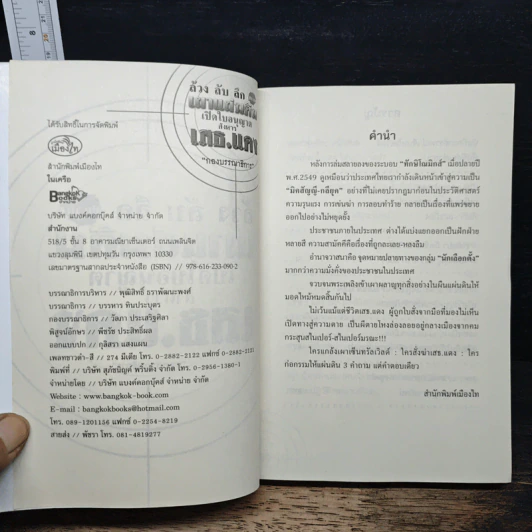 ล้วง ลับ ลึก
เผาแผ่นดิน
เปิดใบอนุญาต
สังหาร
เสธ.แดง
"กองบรรณาธิการ"
ได้รับสิทธิ์ในการจัดพิมพ์
เมืองไท
สำนักพิมพ์เมืองไท
ในเครือ
Bangkok
Books
บริษัท แบงค์คอกบุ๊คส์ จำหน่าย จำกัด
สำนักงาน
518/5 ชั้น 8 อาคารมณียาเซ็นเตอร์ ถนนเพลินจิต
แขวงลุมพินี เขตปทุมวัน กรุงเทพฯ 10330
เลขมาตรฐานสากลประจำหนังสือ (ISBN) // 978-616-233-090-2
บรรณาธิการบริหาร // พุฒิสิทธิ์ ธราพัฒนะพงศ์
บรรณาธิการ // บรรหาร ทินประบุตร
กองบรรณาธิการ // วัลภา ประเสริฐศิลา
พิสูจน์อักษร // พีธรัช ประสิทธิ์ผล
ออกแบบปก // กุลิสรา แสงแผน
เพลทยาวดำ-สี // 274 มีเดีย โทร. 0-2882-2132 แฟกซ์ 0-2882-2133
พิมพ์ที่ // บริษัท สุภัชนิญค์ พริ้นติ้ง จำกัด โทร. 0-2956-1380-1
จำหน่ายโดย // บริษัท แบงค์คอกบุ๊คส์ จำหน่าย จำกัด
Website : www.bangkok-book.com
E-mail : bangkokbooks@hotmail.com
โทร. 089-1201156 แฟกซ์ 0-2254-8219
สายส่ง // พัชรา โทร. 081-4819277
คำนำ
หลังการล่มสลายลงของระบอบ "ทักษิโณมิกส์" เมื่อปลายปี
พ.ศ.2549 ดูเหมือนว่าประเทศไทยเรากำลังเดินหน้าเข้าสู่ความเป็น
"มิคสัญญี-กลียุค" อย่างที่ไม่เคยปรากฏมาก่อนในประวัติศาสตร์
ความรุนแรง การเข่นฆ่า การลอบทำร้าย กลายเป็นเรื่องที่แพร่ขยาย
ออกไปอย่างไม่หยุดยั้ง
ประชาชนภายในประเทศ ต่างได้แบ่งแยกออกเป็นฝักฝ่าย
หลายสี ความสามัคคีคือเรื่องที่ถูกละเลย-หลงลืม
อำนาจวาสนาคือ จุดหมายปลายทางของกลุ่ม "นักเลือกตั้ง"
มากกว่าความมั่งคั่งของประชาชนในประเทศ
ขวบจนพระเพลิงเข้าเผาผลาญทุกสิ่งอย่างในผืนแผ่นดินให้
มอดไหม้หมดสิ้นกันไป
ไม่เว้นแม้แต่ชีวิตเสธ.แดง ผู้ถูกใบสั่งจากมือที่มองไม่เห็น
เปิดทางสู่ความตาย เป็นผีตายโหงล่องลอยอยู่กลางเมืองจากคม
กระสุนสไนเปอร์-สไนเปอร์มรณะ!!!
ใครแกล้งเผาเซ็นทรัลเวิลด์ : ใครสั่งฆ่าเสธ.แดง : ใคร
ก่อกรรมให้แผ่นดิน 3 คำถาม แต่คำตอบเดียว
สำนักพิมพ์เมืองไท